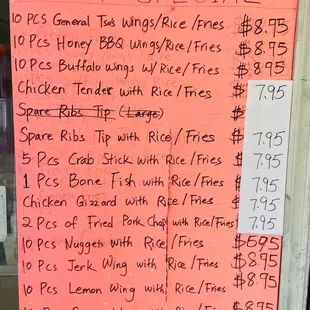 10 Pcs General Tso's Wings/Rice/Fries $8.75
10 Pcs Honey BBQ Wings/Rice/Fries $8.75
10 Pcs Buffalo Wings w/ Rice/Fries $8.95
Chicken Tender with Rice/Fries $7.95
Spare Ribs Tip (Large) $
Spare Ribs Tip with Rice/Fries $7.95
5 Pcs Crab Stick with Rice/Fries $7.95
1 Pcs Bone Fish with Rice/Fries $7.95
Chicken Gizzard with Rice/Fries $7.95
2 Pcs of Fried Pork Chop with Rice/Fries $7.95
10 Pcs Nuggets with Rice/Fries $6.95
10 Pcs Jerk Wing with Rice/Fries $8.95
10 Pcs Lemon Wing with Rice/Fries $8.75